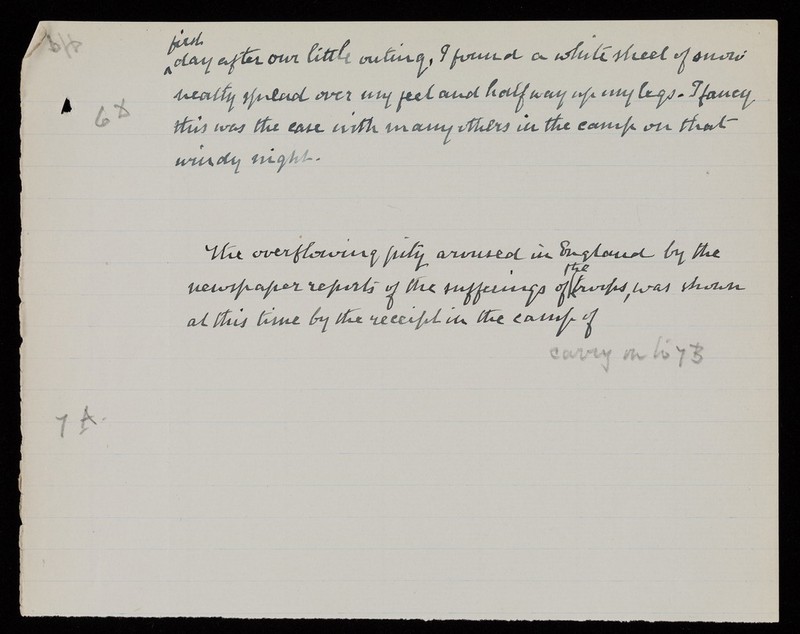 first
day after our little outing, I found a white sheet of snow
neatly spread over my feet and halfway up my legs. I fancy
this was the case with many others in the camp on that
windy night.
6 D
The overflowing pity aroused in England by the
newspaper reports of the sufferings of the troops, was shown
at this time by the receipt in the camp of
carry on to 7 B
7 A.